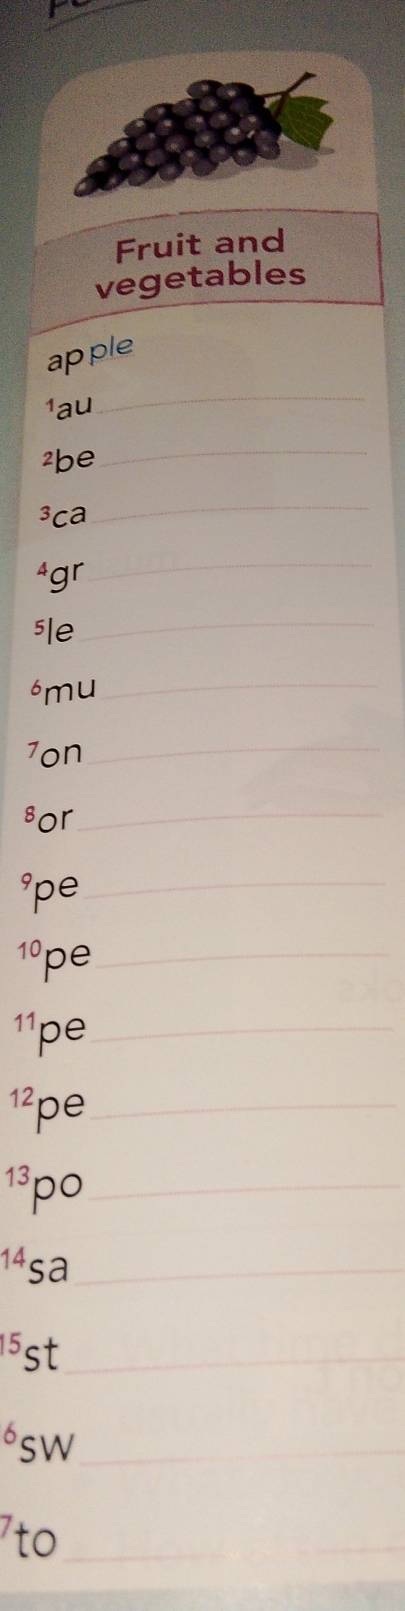 Fruit and
vegetables
apple
1au
2be
3ca
4gr
5le
6mu
7on
8or
9pe
10pe
11pe
12pe
13po
14sa
15st
6sw
7to